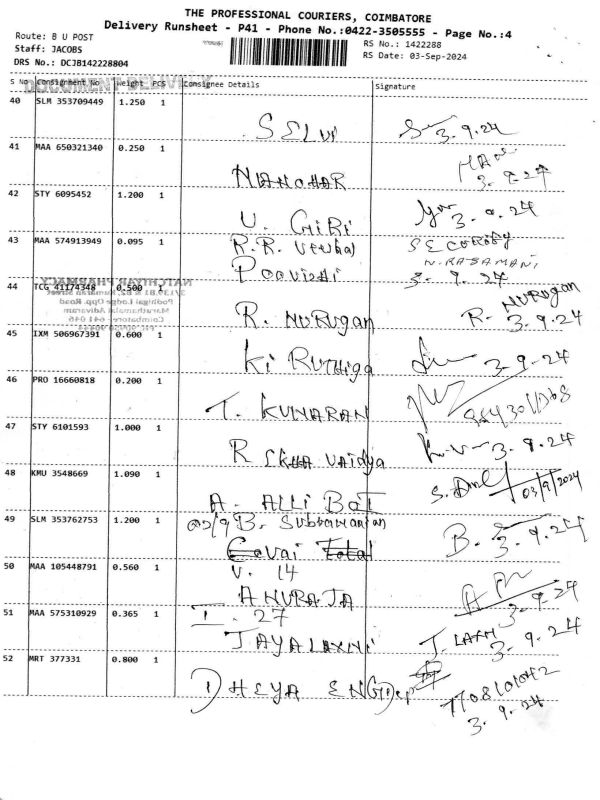 THE PROFESSIONAL COURIERS, COIMBATORE
Delivery Runsheet - P41 - Phone No.:0422-3505555 - Page No.:4
Route: B U POST
RS No.: 1422288
Staff: JACOBS
RS Date: 03-Sep-2024
DRS No.: DCJB142228804
S No Consignment No Weight PCS Consignee Details Signature
40 SLM 353709449 1.250 1
SELVI 3.9.24
41 MAA 650321340 0.250 1
MANOHAR 3.9.24
42 STY 6095452 1.200 1
U. GIRI 3.9.24
43 MAA 574913949 0.095 1
R.R. SECURITY
N.RASAMANI
3.9.24
44 TCG 41174348 0.500 1
R. MURUGAN R. MURUGAN
3.9.24
45 IXM 506967391 0.600 1
Ki RUTHIGA 3.9.24
46 PRO 16660818 0.200 1
T. KUMARAN
47 STY 6101593 1.000 1
R vaidya 3.9.24
48 KMU 3548669 1.090 1
A. ALLI BAI 03/9/2024
49 SLM 353762753 1.200 1
B. Subbamanian B.
3.9.24
50 MAA 105448791 0.560 1
V. 14
ANURAJA 3.9.24
51 MAA 575310929 0.365 1
I. 27
JAYALAXMI J. LAXM 3.9.24
52 MRT 377331 0.800 1
DHEYA ENG
3.9.24
NATCHIYAR PHARMACY
Podhigai Lodge Opp. Road
Maruthamalai Adivaram
Coimbatore - 641 046